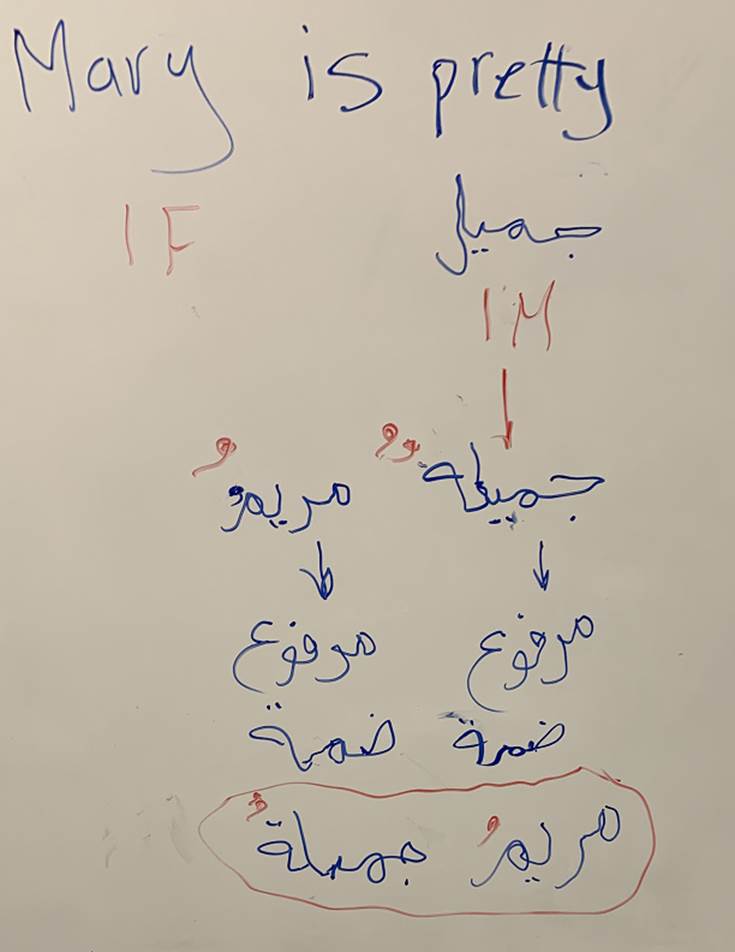 Mary is pretty
جميل
1F
1M
جميلةٌ مريمُ
مرفوع مرفوع
ضمة ضمة
مريمُ جميلةٌ